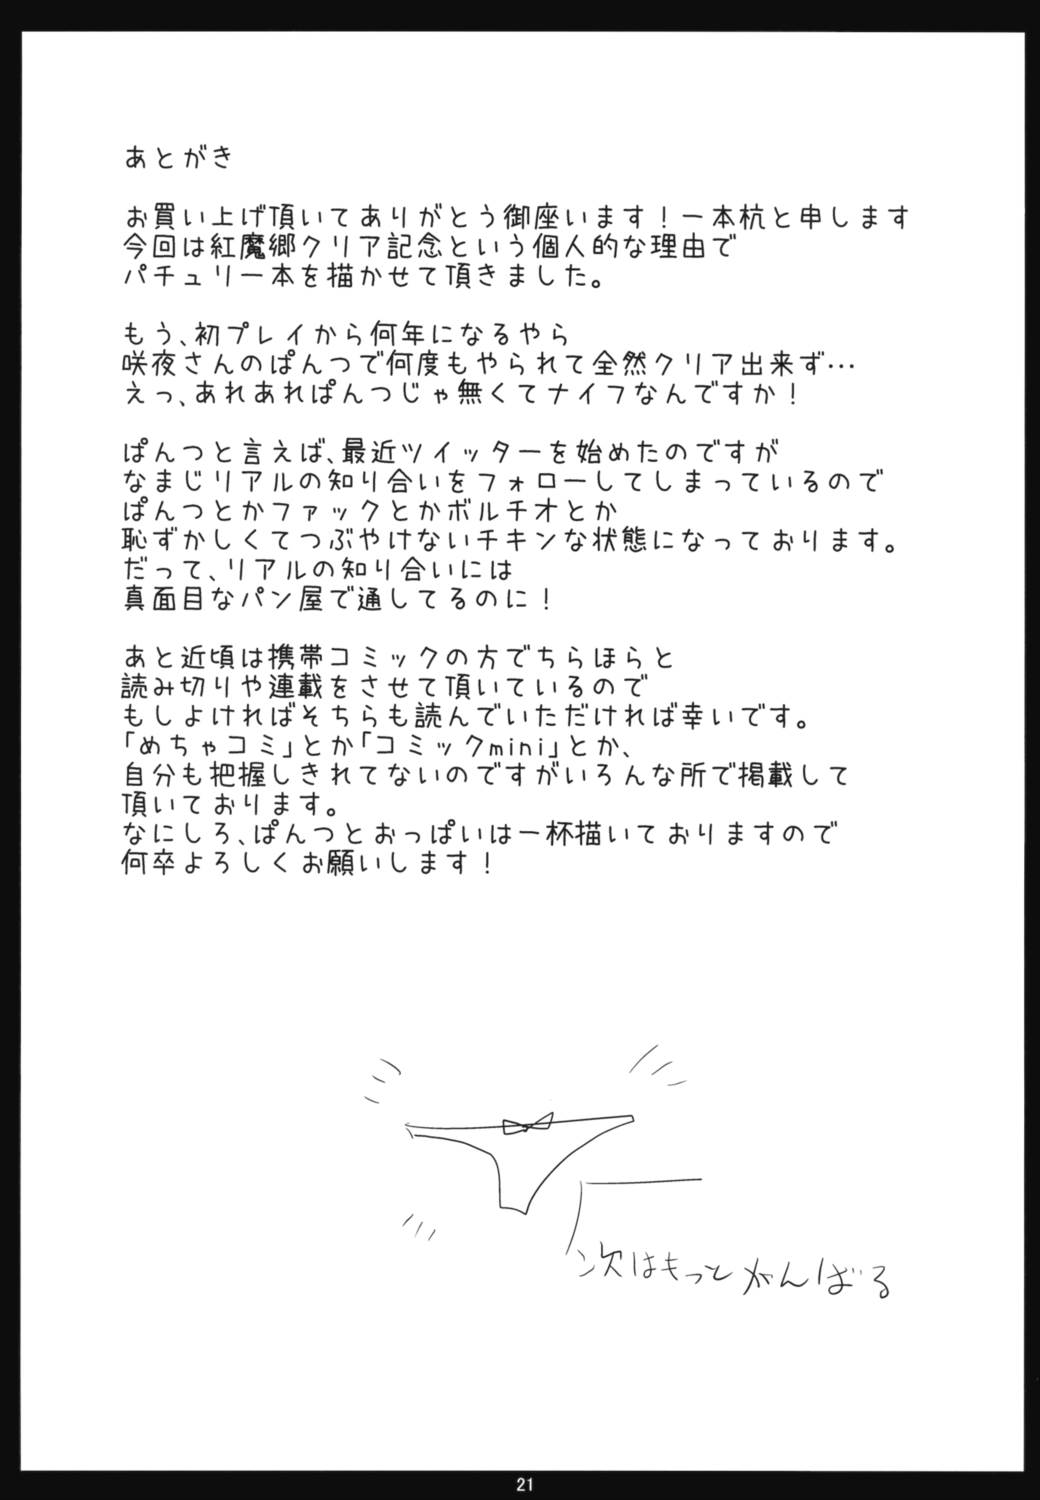 あとがき
お買い上げ頂いてありがとう御座います！一本杭と申します
今回は紅魔郷クリア記念という個人的な理由で
パチュリー本を描かせて頂きました。
もう、初プレイから何年になるやら
咲夜さんのぱんつで何度もやられて全然クリア出来ず…
えっ、あれあれぱんつじゃ無くてナイフなんですか！
ぱんつと言えば、最近ツイッターを始めたのですが
なまじリアルの知り合いをフォローしてしまっているので
ぱんつとかファックとかボルチオとか
恥ずかしくてつぶやけないチキンな状態になっております。
だって、リアルの知り合いには
真面目なパン屋で通してるのに！
あと近頃は携帯コミックの方でちらほらと
読み切りや連載をさせて頂いているので
もしよければそちらも読んでいただければ幸いです。
「めちゃコミ」とか「コミックmini」とか、
自分も把握しきれてないのですがいろんな所で掲載して
頂いております。
なにしろ、ぱんつとおっぱいは一杯描いておりますので
何卒よろしくお願いします！
次はもっとがんばる
21